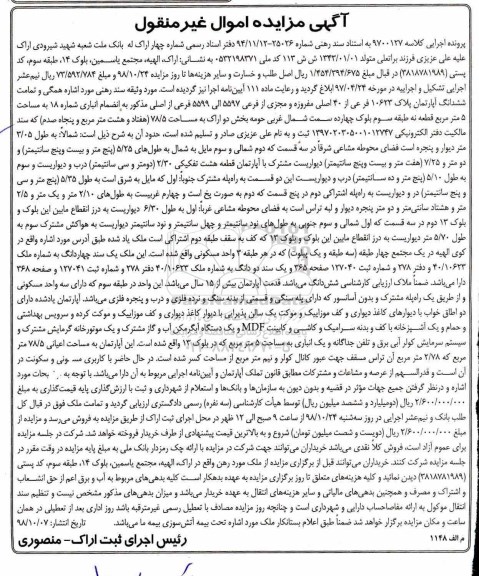 آگهی مزایده اموال غیرمنقول
پرونده اجرایی کلاسه ۹۷۰۰۱۲۷ به استناد سند رهنی شماره ۲۵۰۲۶-۹۴/۱۱/۱۲ دفتر اسناد رسمی شماره چهار اراک له بانک ملت شعبه شهید شیرودی اراک
علیه علی عزیزی فرزند براتعلی متولد ۱۳۴۳/۰۱/۰۱ ش ش ۱۱۳ کد ملی ۰۵۳۲۱۹۸۳۷۱ به نشانی: اراک، الهیه، مجتمع یاسمین، بلوک ۱۴، طبقه سوم، کد
پستی (۳۸۱۸۷۸۱۹۸۹) در قبال مبلغ ۱/۴۵۴/۲۹۴/۶۷۵ ریال اصل طلب و خسارت و سایر هزینه‌ها تا روز مزایده ۹۸/۱۰/۲۴ و مبلغ ۷۳/۵۹۲/۷۸۴ ریال نیم‌عشر
اجرایی تشکیل و اجراییه در مورخه ۹۷/۰۴/۲۴ ابلاغ گردید و رعایت ماده ۱۱۱ آیین‌نامه اجرا نیز گردیده است. مورد وثیقه سند رهنی مورد اشاره همگی و تمامت
ششدانگ آپارتمان پلاک ۱۰۶۲۳ فرعی از ۴۰ اصلی مفروزه و مجزی از فرعی ۵۵۹۷ الی ۵۵۹۹ فرعی از اصلی مذکور به انضمام انباری شماره ۱۸ به مساحت
۵ متر مربع قطعه نه طبقه سوم بلوک چهارده سمت شمال غربی حومه بخش دو اراک به مساحت ۷۸/۵ (هفتاد و هشت متر مربع و پنجاه صدم) که سند
مالکیت دفتر الکترونیکی ۱۳۹۷۰۲۰۳۰۵۰۰۱۰۱۲۷۴۷ ثبت و به نام علی عزیزی صادر و تسلیم شده است، حدود آن به شرح ذیل است: شمالاً: به طول ۳/۰۵
متر دیوار و پنجره است فضای محوطه مشاعی شرقاً در سه قسمت که دوم شمالی و سوم مایل به شمال به طول‌های ۵/۲۵ (پنج متر و بیست وپنج سانتیمتر) و
و دو متر و ۷/۲۵ (هفت متر و بیست وپنج سانتیمتر) دیواریست مشترک با آپارتمان قطعه هشت تفکیکی ۲/۳۰ (دومتر و سی سانتیمتر) درب و دیواریست و سوم
به طول ۵/۱۰ (پنج متر و ده سانتیمتر) درب و دیواریست این دو قسمت به راه‌پله مشترک جنوباً: اول که مایل به شرق است به طول ۵/۳۵ (پنج متر و سی
و پنج سانتیمتر) در و دیواریست به راه‌پله اشتراکی دوم در پنج قسمت که دوم به صورت پخ است و چهارم غربیست به طول‌های ۲/۱۰ متر و یک متر و ۲/۵
متر و هشتاد سانتی‌متر و دو متر پنجره دیوار و لبه تراس است به فضای محوطه مشاعی غرباً: اول به طول ۶/۳۰ دیواریست به درز انقطاع مابین این بلوک و
بلوک ۱۳ دوم در سه قسمت که اول شمالی و سوم جنوبی به طول‌های نود سانتیمتر و چهل سانتیمتر و نود سانتیمتر دیواریست به هواکش مشترک سوم به
طول ۵/۷۰ متر دیواریست به درز انقطاع مابین این بلوک و بلوک ۱۳ که کف به سقف طبقه دوم اشتراکی است ملک یاد شده طبق آدرس مورد اشاره واقع در
کوی الهیه در یک مجتمع چهار طبقه (سه طبقه و یک پیلوت) که در هر طبقه ۳ واحد مسکونی واقع شده است. این ملک یک سند چهاردانگ به شماره ملک
۴۰/۱۰۶۲۳ و دفتر ۳۷۸ و شماره ثبت ۱۲۷۰۴۰ صفحه ۳۶۵ و یک سند دو دانگ به شماره ملک ۴۰/۱۰۶۲۳ دفتر ۳۷۸ و شماره ثبت ۱۲۷۰۴۱ و صفحه ۳۶۸
دارا می‌باشد. ضمناً ملاک ارزیابی کارشناسی شش‌دانگ می‌باشد. قدمت آپارتمان بیش از ۱۵ سال می‌باشد. این واحد در طبقه سوم که دارای سه واحد مسکونی
و از طریق یک راه‌پله مشترک و بدون آسانسور که دارای پله‌سنگی و قسمتی از بدنه سنگ و نرده فلزی و درب و پنجره فلزی می‌باشد. آپارتمان یادشده دارای
دو اطاق خواب با دیوارهای کاغذ دیواری و کف موزاییک و موکت یک سالن پذیرایی با دیوار کاغذ دیواری و کف موزاییک و موکت کرده و سرویس بهداشتی
و حمام و یک آشپزخانه با کف و بدنه سرامیک و کاشی و کابینت MDF و یک دستگاه آبگرمکن آب و گاز مشترک و یک موتورخانه گرمایش مشترک و
سیستم سرمایش کولر آبی برق و تلفن جداگانه و یک انباری به مساحت ۵ متر مربع که در بلوک ۱۳ واقع شده است. این آپارتمان به مساحت اعیانی ۷۸/۵ متر
مربع که ۲/۷۸ متر مربع آن تراس مسقف جهت عبور کانال کولر و نیم متر مربع از مساحت کسر شده است. در حال حاضر با کاربری مسکونی و سکونت در
آن است و قدرالسهم از عرصه و مشاعات و مشترکات مطابق قانون تملک آپارتمان و آیین‌نامه اجرایی مربوط به آن دارا می‌باشد. با توجه به بحات مورد
اشاره و درنظر گرفتن جمیع جهات مؤثر در قضیه و بدون دیون به سازمان‌ها و بانک‌ها و استعلام از شهرداری و ثبت با ارزش‌گذاری پایه قیمت‌گذاری به مبلغ
۲/۶۰۰/۰۰۰/۰۰۰ ریال (دومیلیارد و ششصد میلیون ریال) توسط هیأت کارشناسی (سه نفره) رسمی دادگستری ارزیابی گردید و تمامت ملک فوق در قبال کل
طلب بانک و نیم‌عشر اجرایی در روز سه‌شنبه ۹۸/۱۰/۲۴ از ساعت ۹ صبح الی ۱۲ ظهر در محل اجرای ثبت اراک از طریق مزایده به فروش می‌رسد و مزایده از
مبلغ ۲/۶۰۰/۰۰۰/۰۰۰ ریال (دویست و شصت میلیون تومان) شروع و به بالاترین قیمت پیشنهادی از طرف خریدار فروخته خواهد شد. شرکت در جلسه مزایده
برای عموم آزاد است، فروش کالا نقدی می‌باشد خریداران می‌توانند جهت شرکت در مزایده با ارائه چک رمزدار بانک ملی به مبلغ پایه مزایده در وقت مقرر در
جلسه مزایده شرکت کنند. خریداران می‌توانند قبل از برگزاری مزایده از ملک مورد رهن واقع در اراک، الهیه، مجتمع یاسمین، بلوک ۱۴، طبقه سوم، کد پستی
(۳۸۱۸۷۸۱۹۸۹) دیدن نمائید و کلیه هزینه‌های متعلق تا روز برگزاری مزایده به عهده بدهکار است کلیه بدهی‌های مربوطه به آب و برق اعم از حق انشعاب
و اشتراک و مصرف و همچنین بدهی‌های مالیاتی و سایر هزینه‌های انتقال به عهده خریدار می‌باشد و میزان بدهی‌های مذکور مشخص نیست و تنظیم سند
انتقال موکول به ارائه مفاصاحساب دارایی و شهرداری است و چنانچه روز مزایده مصادف با تعطیل رسمی غیرمترقبه باشد روز اداری بعد از تعطیلی در همان
ساعت و مکان مزایده برگزار خواهد شد ضمناً طبق اعلام بستانکار ملک مورد اشاره تحت بیمه آتش‌سوزی بیمه ما می‌باشد. تاریخ انتشار: ۹۸/۱۰/۰۷
م الف ۱۱۴۸
رئیس اجرای ثبت اراک- منصوری